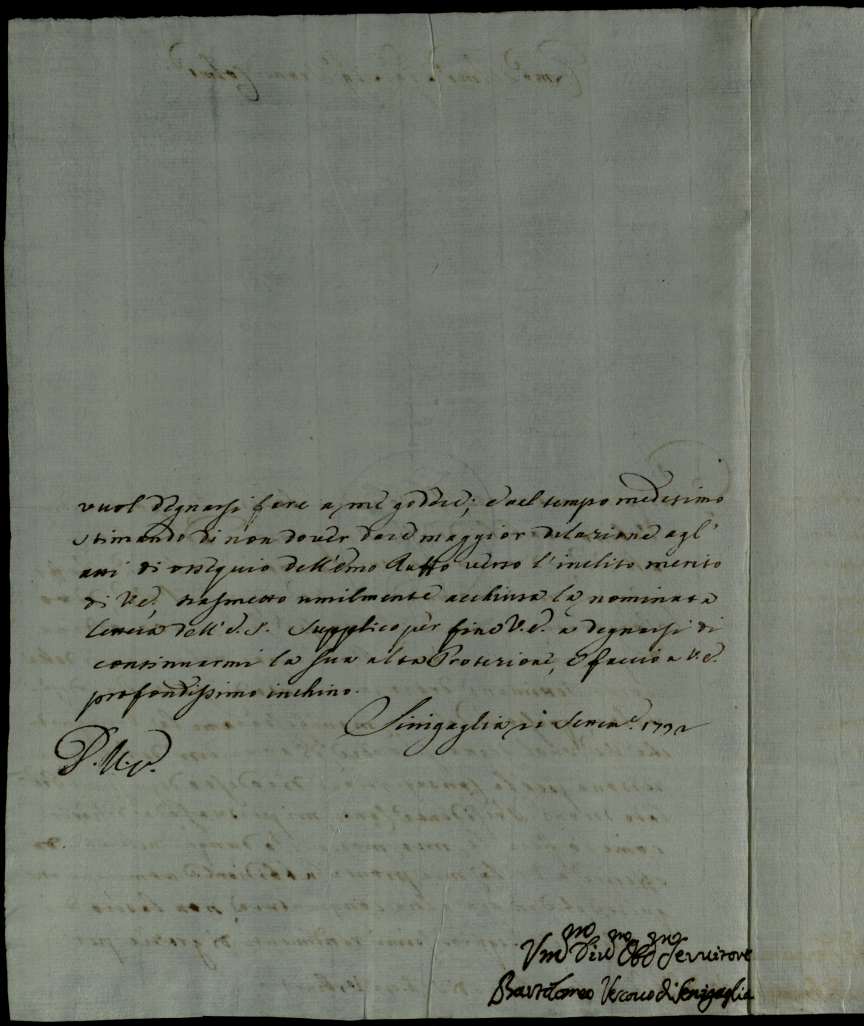 vuol degnarsi fare a me godere; e nel tempo medesimo
stimando di non dover dare maggior dilazione agl'
atti di ossequio dell'Emo Ruffo verso l'inclito merito
di V.E., trasmetto umilmente acchiusa la nominata
lettera dell'E.S. Supplico per fine V.E. a degnarsi di
continuarmi la sua alta Protezione, e faccio a V.E.
profondissimo inchino.
Sinigaglia Settem.e
D. V. E.
Um.mo Div.mo Obb.mo Servitore
Bartolomeo Vescovo di Senigaglia